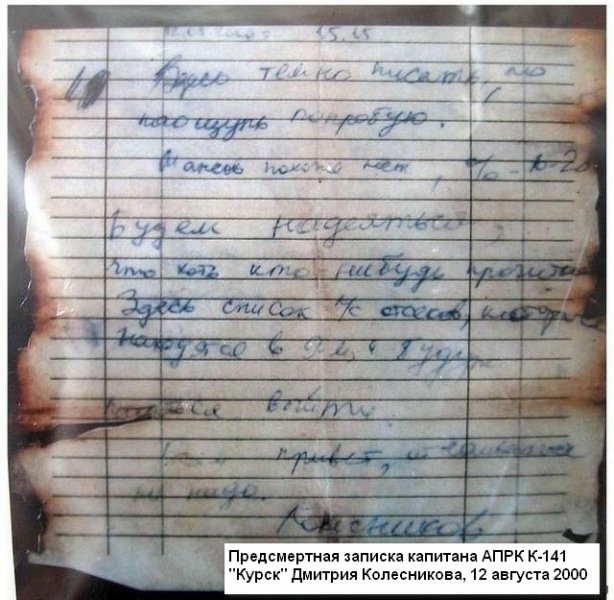 15.15
Здесь темно писать, но
наощупь попробую.
Шансов похоже нет, % 10-20
Будем надеяться,
что хоть кто-нибудь прочитает
Здесь список л/с отсеков, которые
находятся в 9-м и будут
пытаться выйти.
Всем привет, отчаиваться
не надо.
Колесников
Предсмертная записка капитана АПРК К-141
"Курск" Дмитрия Колесникова, 12 августа 2000